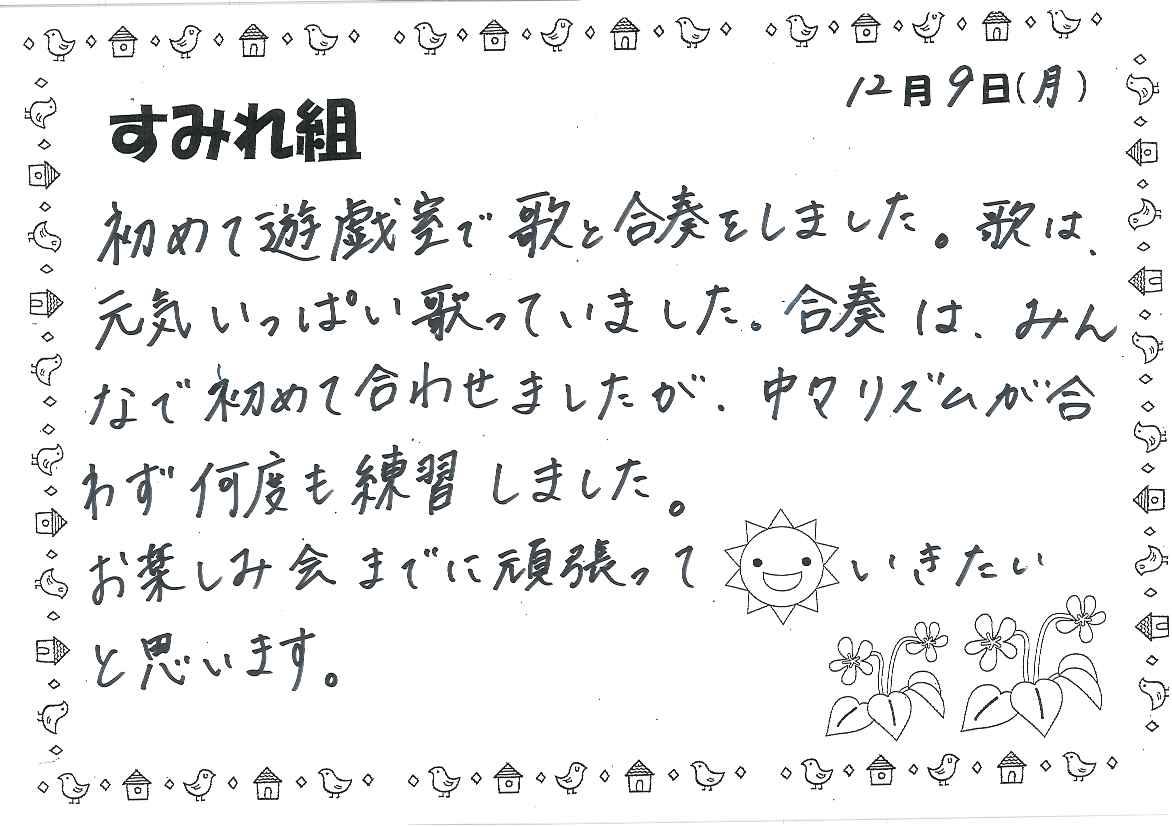 12月9日(月)
すみれ組
初めて遊戯室で歌と合奏をしました。歌は、
元気いっぱい歌っていました。合奏は、みん
なで初めて合わせましたが、中々リズムが合
わず何度も練習しました。
お楽しみ会までに頑張っていきたい
と思います。